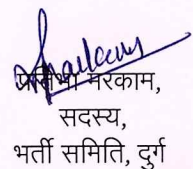 प्रतिभा मरकाम,
सदस्य,
भर्ती समिति, दुर्ग